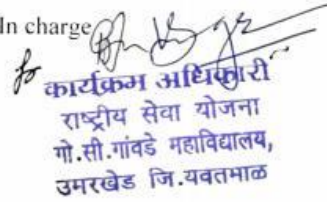 In charge
for
कार्यक्रम अधिकारी
राष्ट्रीय सेवा योजना
गो.सी.गांवडे महाविद्यालय,
उमरखेड जि.यवतमाळ